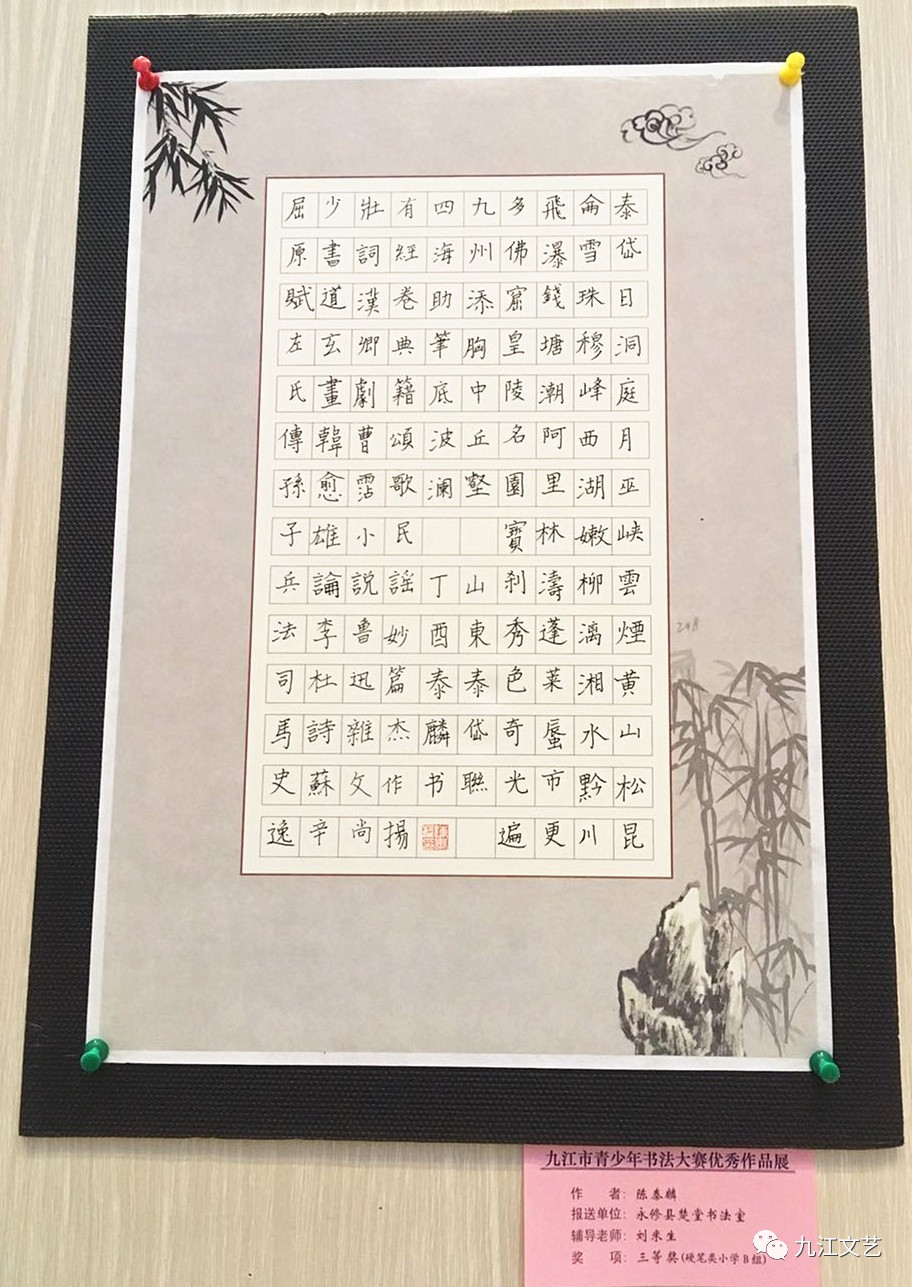 泰岱日洞庭月巫峡雲煙黄山松昆
侖雪珠穆峰西湖嫩柳漓湘水黔川
飛瀑錢塘潮阿里林濤蓬莱蜃市更
多佛窟皇陵名園寶刹秀色奇光遍
九州添胸中丘壑山東泰岱聯
四海助筆底波澜丁酉泰麟书
有經卷典籍頌歌民謡妙篇杰作揚
壯詞漢卿劇曹霑小説魯迅雜文尚
少書道玄畫韓愈雄論李杜詩蘇辛
屈原賦左氏傳孫子兵法司馬史逸
九江市青少年书法大赛优秀作品展
作 者：陈泰麟
报送单位：永修县楚堂书法室
辅导老师：刘来生
奖 项：三等奖(硬笔类小学B组)
九江文艺